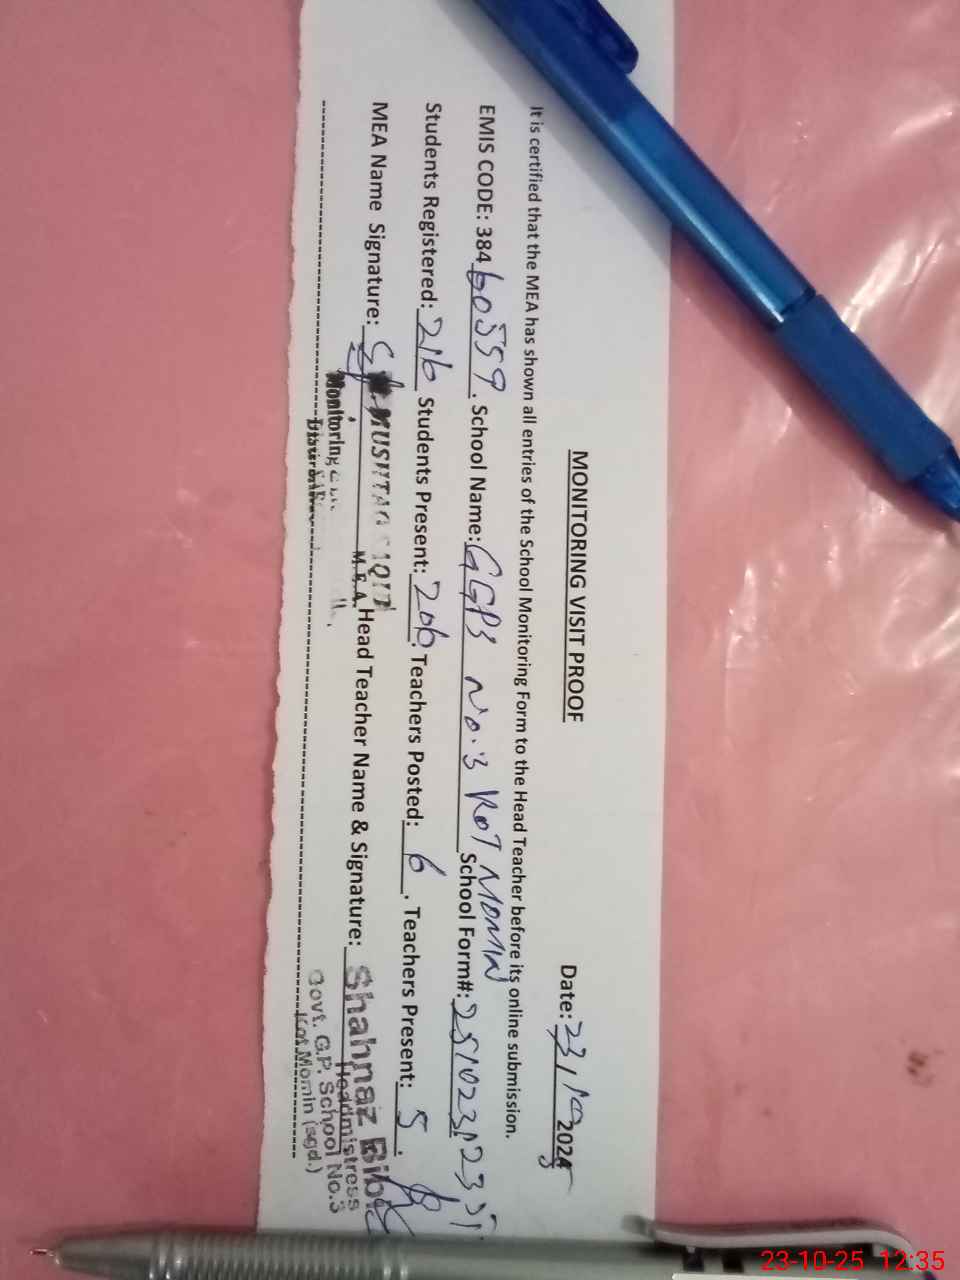 MONITORING VISIT PROOF
Date: 23/10/2025
It is certified that the MEA has shown all entries of the School Monitoring Form to the Head Teacher before its online submission.
EMIS CODE: 38460559. School Name: GGPS No.3 KOT MOMIN School Form#:
Students Registered: 216 Students Present: 206. Teachers Posted: 6. Teachers Present: 5.
MEA Name Signature: MUSHTAQ Head Teacher Name & Signature: Shahnaz Bibi
M.E.A
Monitoring
Headmistress
Govt. G.P. School No.3
Kot Momin (sgd.)
23-10-25 12:35